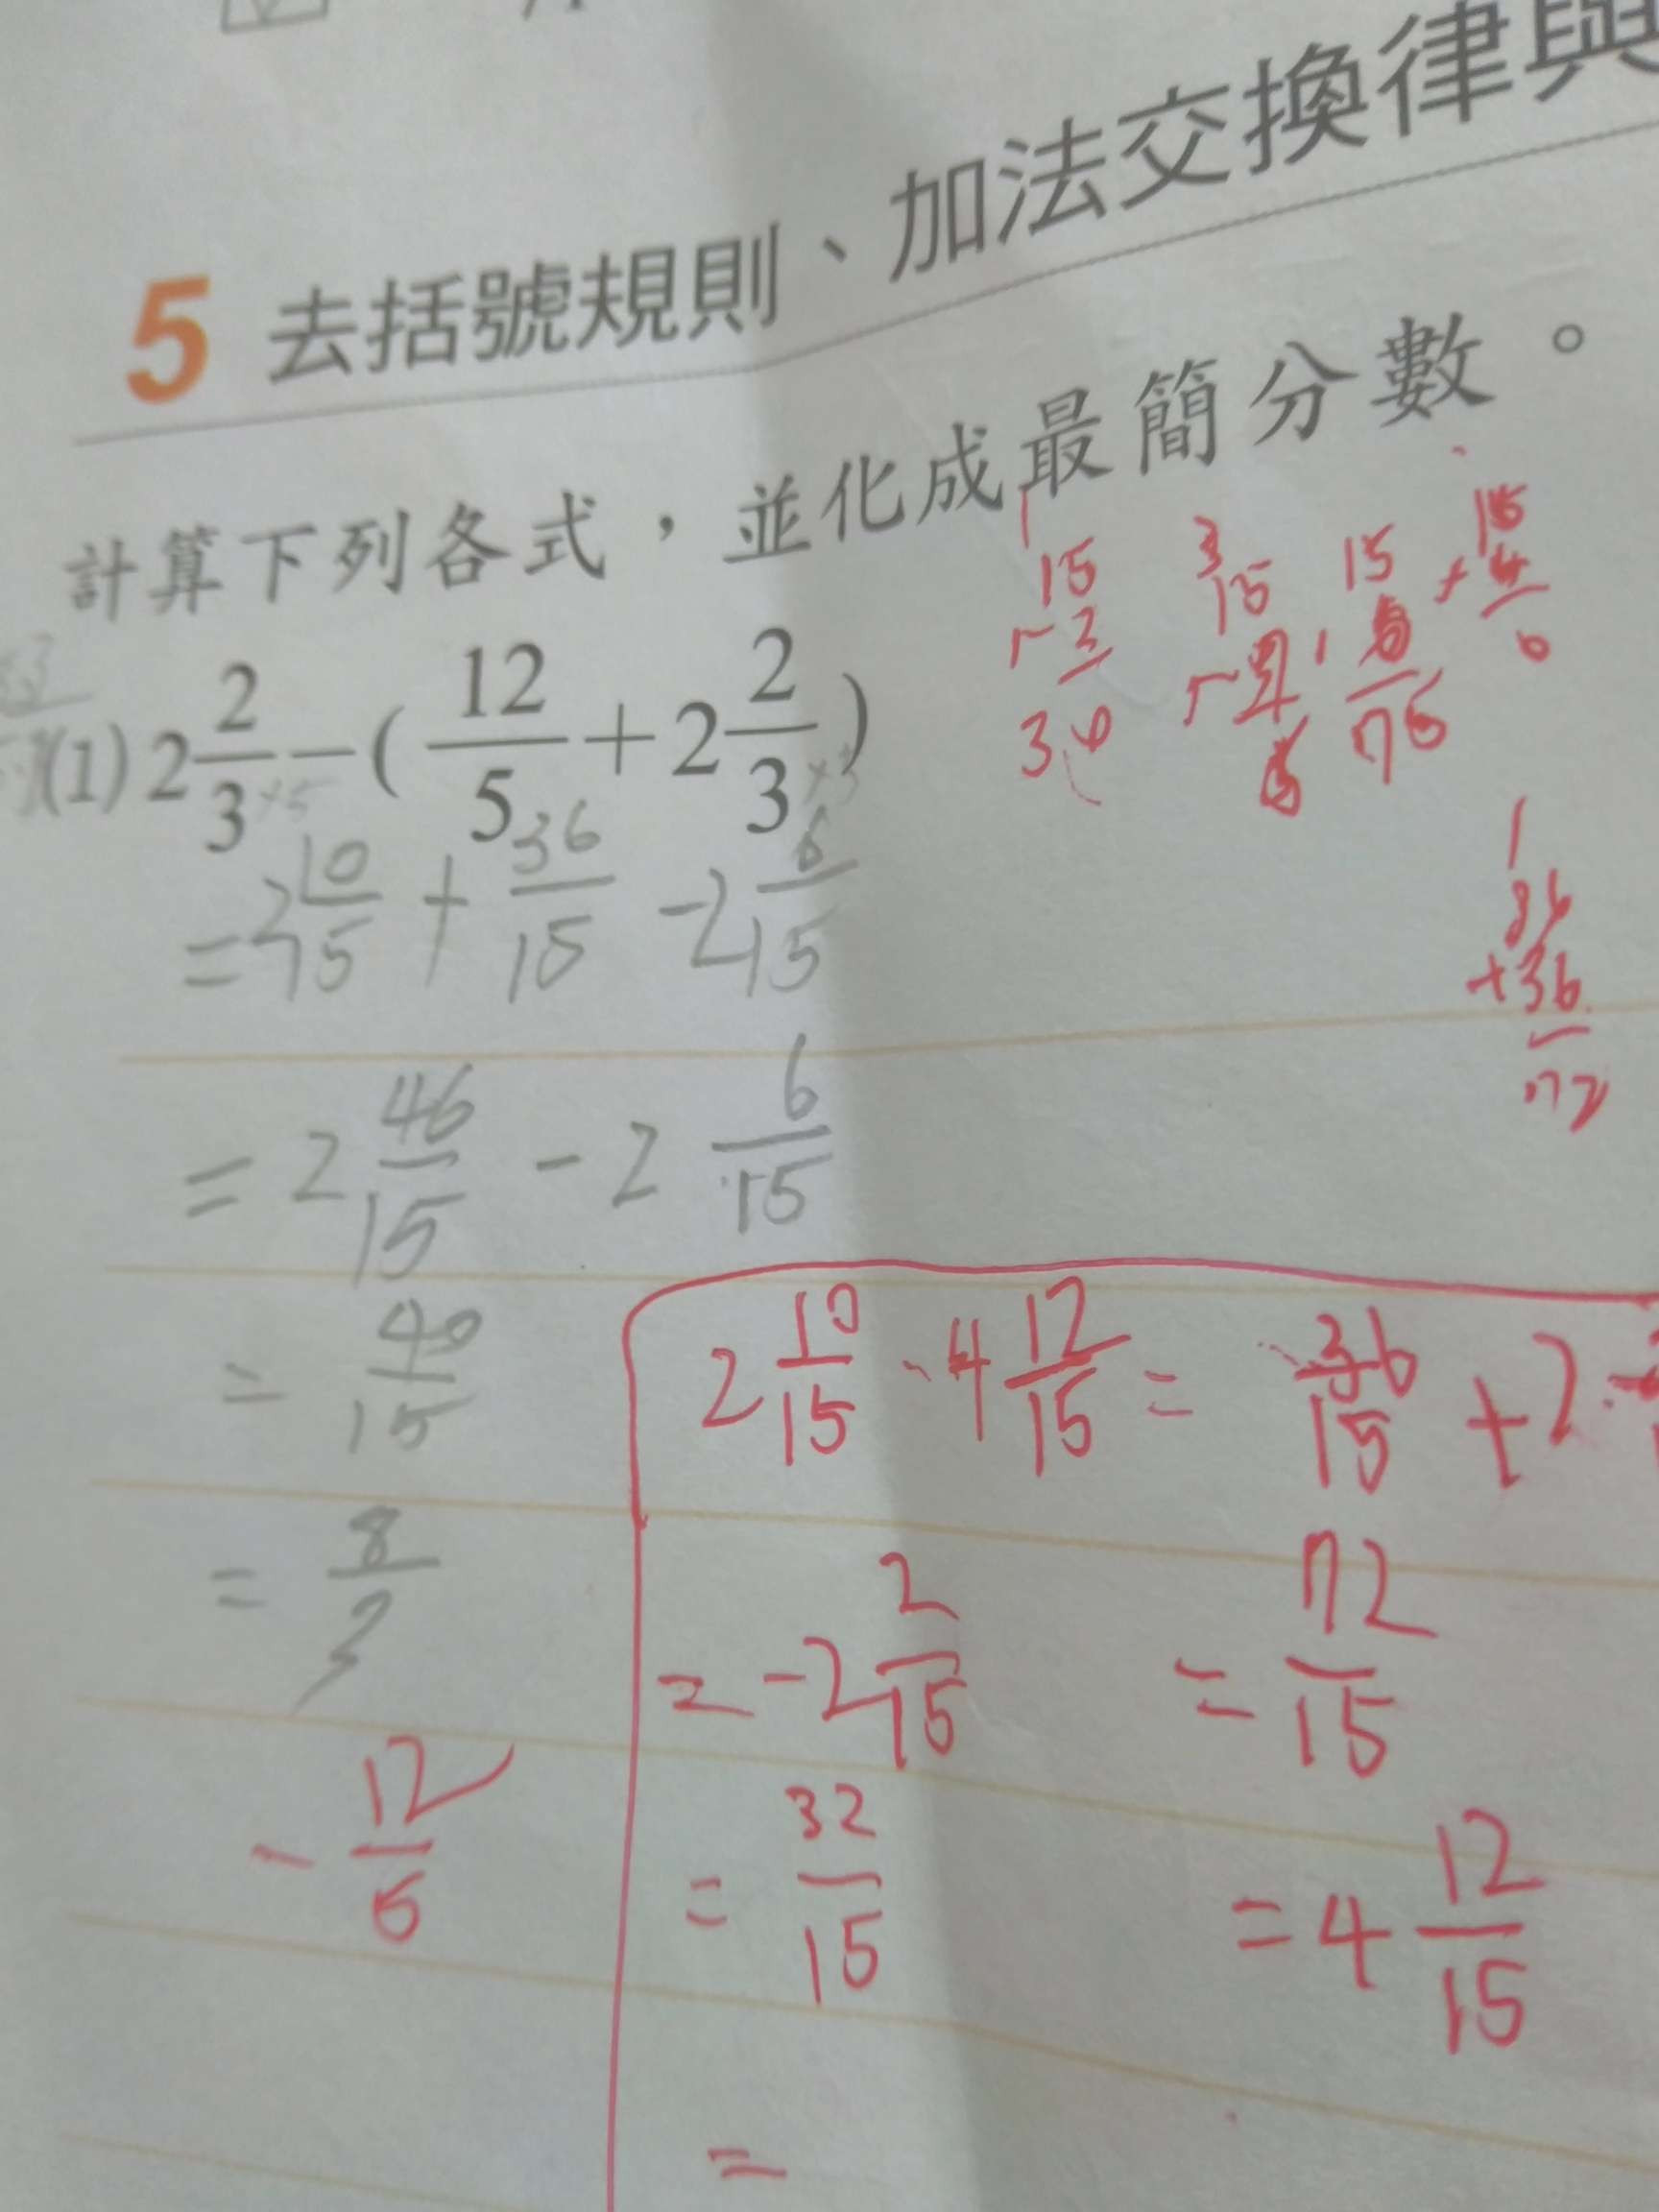 5 去括號規則、加法交換律與
計算下列各式，並化成最簡分數。
(1) 2 2/3 - ( 12/5 + 2 2/3 )
= 2 10/15 + 36/15 - 2 6/15
= 2 46/15 - 2 6/15
= 40/15
= 8/3
- 12/5
2 10/15 - 4 12/15 =
= -2 2/15
= 32/15
=
36/15 + 2
= 72/15
= 4 12/15
15
36
+36
72
15
75